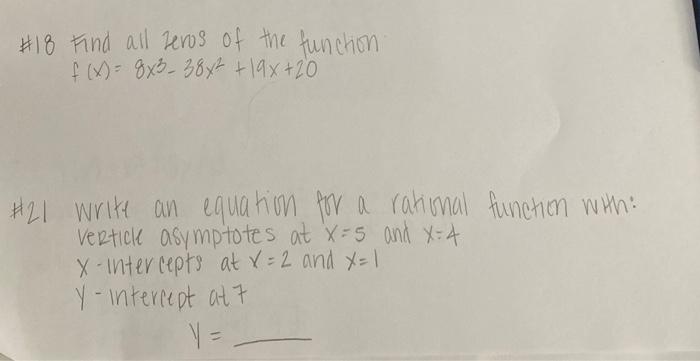 #18 Find all zeros of the function
f(x) = 8x³ - 38x² + 19x + 20
#21 Write an equation for a rational function with:
verticle asymptotes at x=5 and x=4
x-intercepts at x=2 and x=1
y-intercept at 7
y = ____